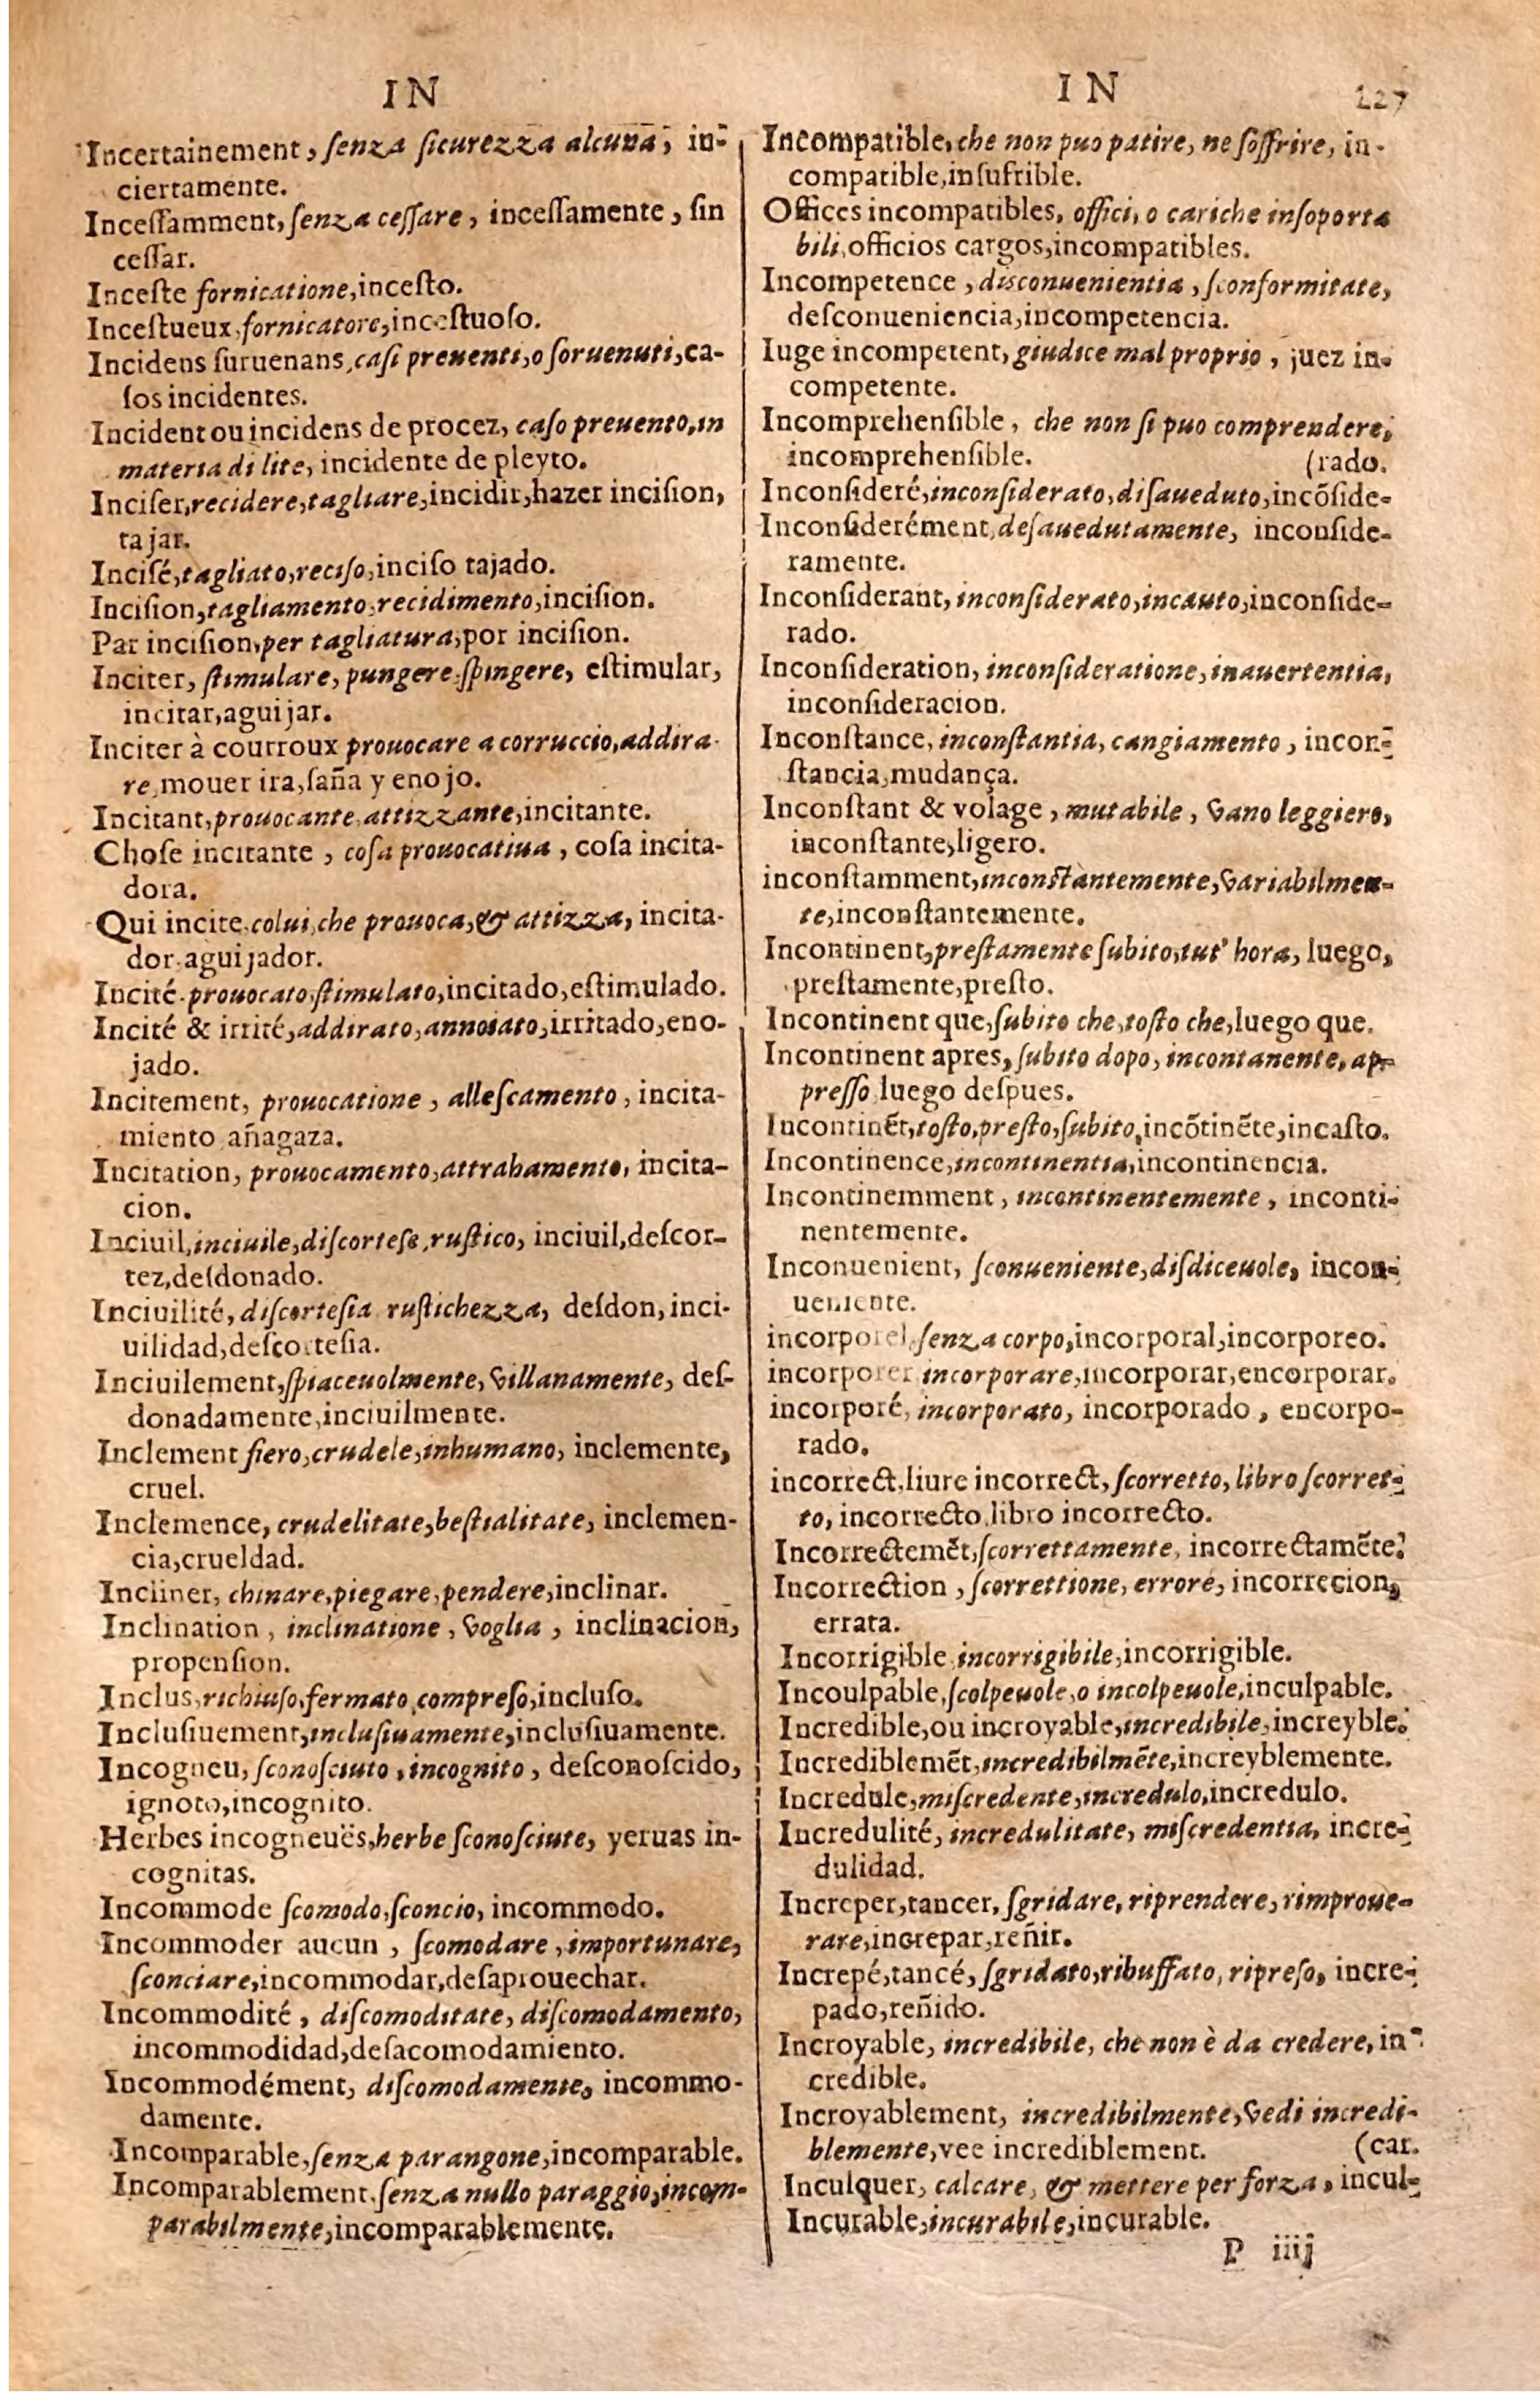 IN
Incertainement, ſenza ſicurezza alcuna, in-
ciertamente.
Inceſſamment, ſenza ceſſare, inceſſamente, ſin
ceſſar.
Inceſte fornicatione, inceſto.
Inceſtueux, fornicatore, inceſtuoſo.
Incidens ſuruenans, caſi preuenti, o ſoruenuti, ca-
ſos incidentes.
Incident ou incidens de procez, caſo preuento, in
materia di lite, incidente de pleyto.
Inciſer, recidere, tagliare, incidir, hazer inciſion,
tajar.
Inciſé, tagliato, reciſo, inciſo tajado.
Inciſion, tagliamento, recidimento, inciſion.
Par inciſion, per tagliatura, por inciſion.
Inciter, ſtimulare, pungere, ſpingere, eſtimular,
incitar, aguijar.
Inciter à courroux prouocare a corruccio, addira-
re, mouer ira, ſaña y enojo.
Incitant, prouocante, attizzante, incitante.
Choſe incitante, coſa prouocatiua, coſa incita-
dora.
Qui incite, colui, che prouoca, & attizza, incita-
dor aguijador.
Incité, prouocato, ſtimulato, incitado, eſtimulado.
Incité & irrité, addirato, annoiato, irritado, eno-
jado.
Incitement, prouocatione, alleſcamento, incita-
miento añagaza.
Incitation, prouocamento, attrahamento, incita-
cion.
Inciuil, inciuile, diſcorteſe, ruſtico, inciuil, deſcor-
tez, deſdonado.
Inciuilité, diſcorteſia ruſtichezza, deſdon, inci-
uilidad, deſcorteſia.
Inciuilement, ſpiaceuolmente, villanamente, deſ-
donadamente, inciuilmente.
Inclement fiero, crudele, inhumano, inclemente,
cruel.
Inclemence, crudelitate, beſtialitate, inclemen-
cia, crueldad.
Incliner, chinare, piegare, pendere, inclinar.
Inclination, inclinatione, voglia, inclinacion,
propenſion.
Inclus, richiuſo, fermato, compreſo, incluſo.
Incluſiuement, incluſiuamente, incluſiuamente.
Incogneu, ſconoſciuto, incognito, deſconoſcido,
ignoto, incognito.
Herbes incogneuës, herbe ſconoſciute, yeruas in-
cognitas.
Incommode ſcomodo, ſconcio, incommodo.
Incommoder aucun, ſcomodare, importunare,
ſconciare, incommodar, deſaprouechar.
Incommodité, diſcomoditate, diſcomodamento,
incommodidad, deſacomodamiento.
Incommodément, diſcomodamente, incommo-
damente.
Incomparable, ſenza parangone, incomparable.
Incomparablement, ſenza nullo paraggio, incom-
parabilmente, incomparablemente.
IN 227
Incompatible, che non puo patire, ne ſoffrire, in-
compatible, inſufrible.
Offices incompatibles, offici, o cariche inſoporta
bili, officios cargos, incompatibles.
Incompetence, diſconuenientia, ſconformitate,
deſconueniencia, incompetencia.
Iuge incompetent, giudice mal proprio, juez in-
competente.
Incomprehenſible, che non ſi puo comprendere,
incomprehenſible. (rado.
Inconſideré, inconſiderato, diſaueduto, incõſide-
Inconſiderément, deſauedutamente, inconſide-
ramente.
Inconſiderant, inconſiderato, incauto, inconſide-
rado.
Inconſideration, inconſideratione, inauertentia,
inconſideracion.
Inconſtance, inconſtantia, cangiamento,incon-
ſtancia, mudança.
Inconſtant & volage, mutabile, vano leggiero,
inconſtante, ligero.
inconſtamment, inconſtantemente, variabilmen-
te, inconſtantemente.
Incontinent, preſtamente ſubito, tut' hora, luego,
preſtamente, preſto.
Incontinent que, ſubito che, toſto che, luego que.
Incontinent apres, ſubito dopo, incontanente, ap-
preſſo luego deſpues.
Incontinẽt, toſto, preſto, ſubito, incõtinẽte, incaſto.
Incontinence, incontinentia, incontinencia.
Incontinemment, incontinentemente, inconti-
nentemente.
Inconuenient, ſconueniente, diſdiceuole, incon-
ueniente.
incorporel, ſenza corpo, incorporal, incorporeo.
incorporer incorporare, incorporar, encorporar.
incorporé, incorporato, incorporado, encorpo-
rado.
incorrect, liure incorrect, ſcorretto, libro ſcorret-
to, incorrecto, libro incorrecto.
Incorrectemẽt, ſcorrettamente, incorrectamẽte.
Incorrection, ſcorrettione, errore, incorrecion,
errata.
Incorrigible incorrigibile, incorrigible.
Incoulpable, ſcolpeuole, o incolpeuole, inculpable.
Incredible, ou incroyable, incredibile, increyble.
Incrediblemẽt, incredibilmẽte, increyblemente.
Incredule, miſcredente, incredulo, incredulo.
Incredulité, incredulitate, miſcredentia, incre-
dulidad.
Increper, tancer, ſgridare, riprendere, rimproue-
rare, increpar, reñir.
Increpé, tancé, ſgridato, ribuffato, ripreſo, incre-
pado, reñido.
Incroyable, incredibile, che non è da credere, in-
credible.
Incroyablement, incredibilmente, vedi incredi-
blemente, vee incrediblement. (car.
Inculquer, calcare, & mettere per forza, incul-
Incurable, incurabile, incurable.
P iiij